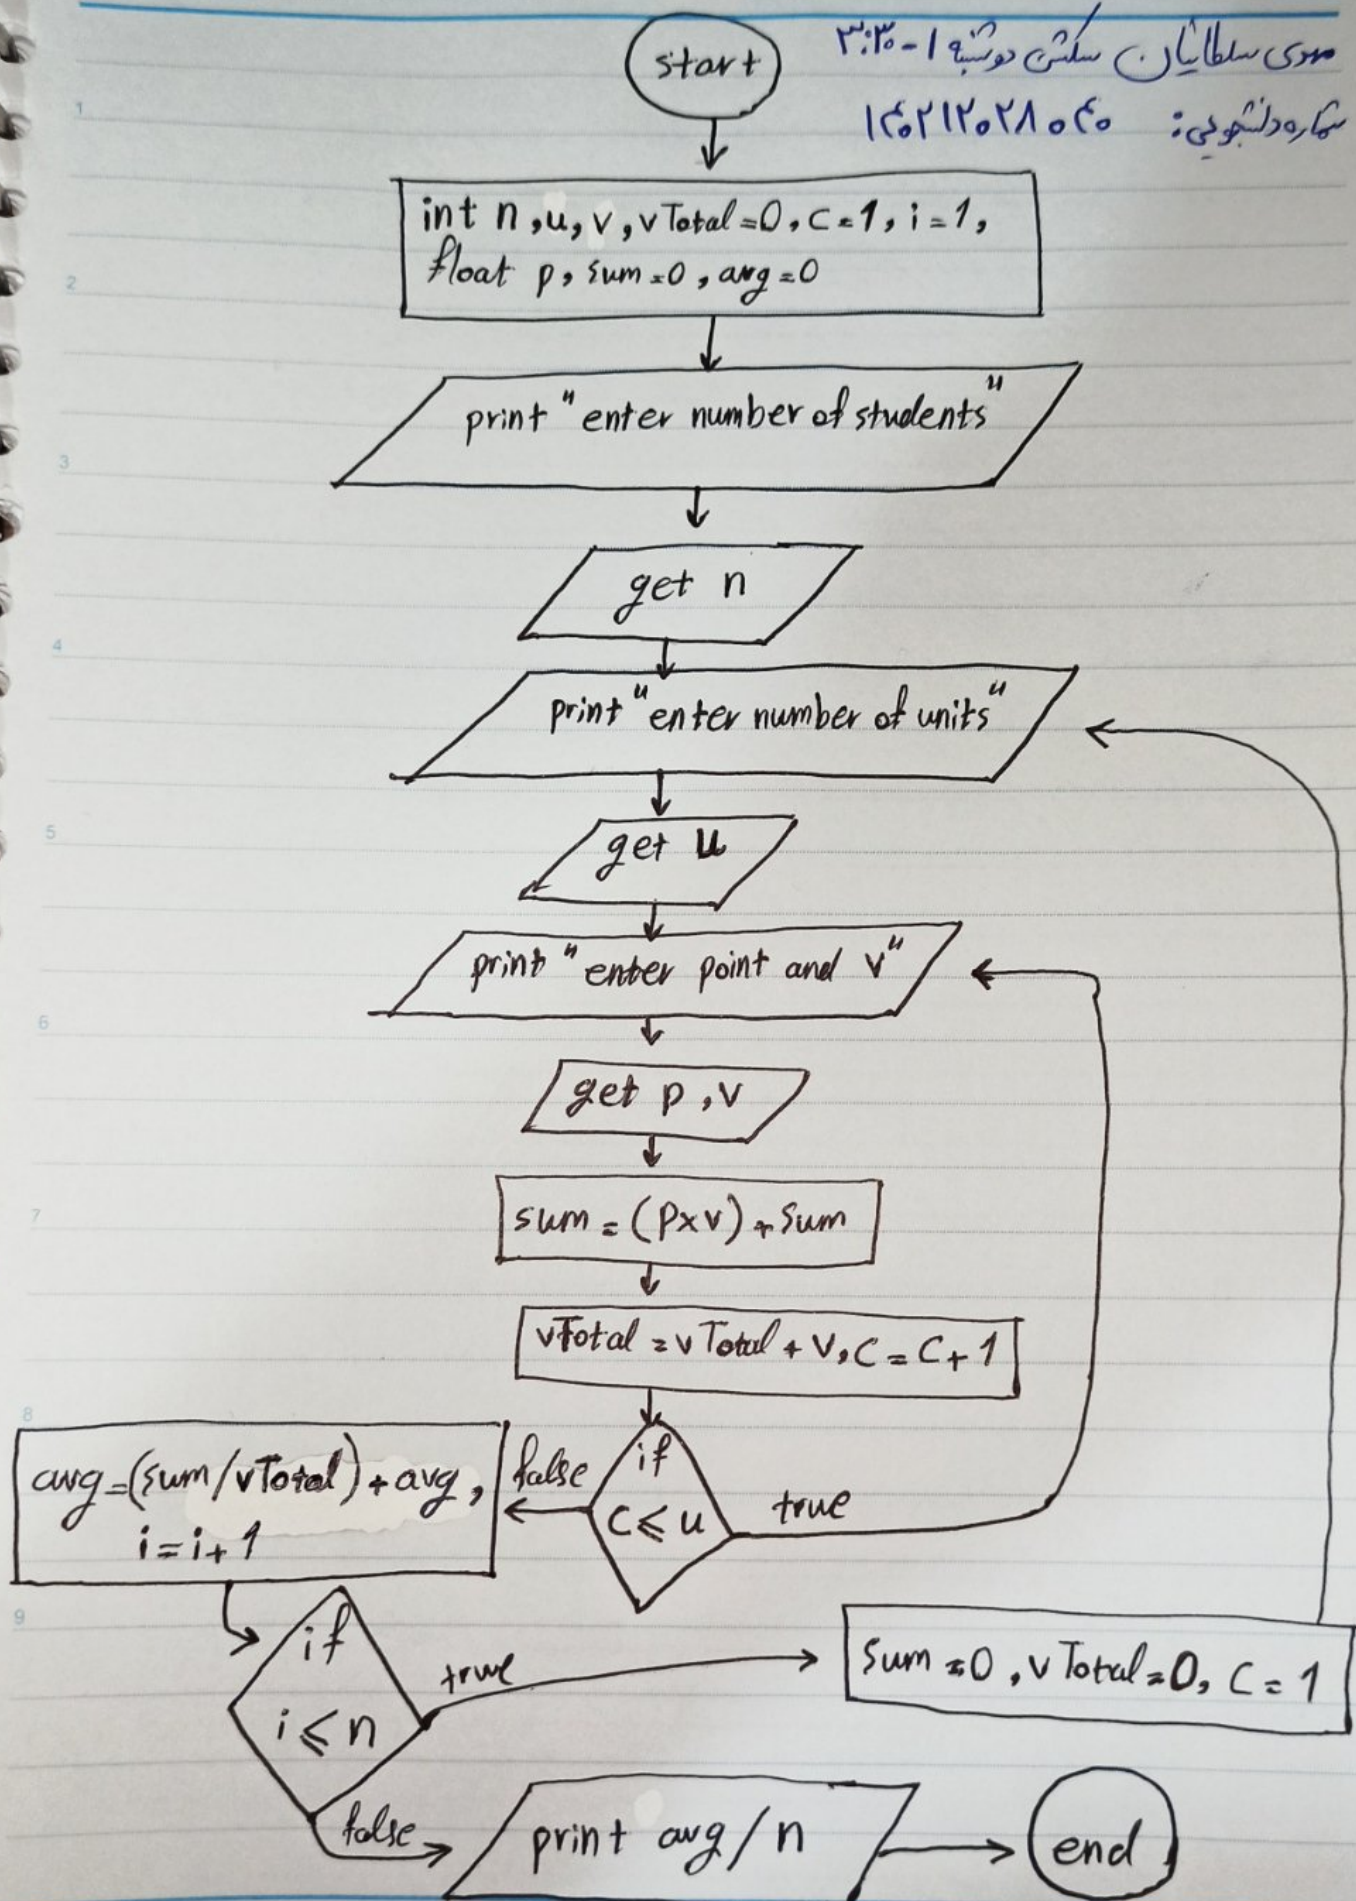 مهدی سلطانیان سکشن دوشنبه ۱-۳:۳۰
شماره دانشجویی: ۱۴۰۲۱۲۰۲۸۰۴۰
start
int n, u, v, vTotal=0, c=1, i=1,
float p, sum=0, avg=0
print "enter number of students"
get n
print "enter number of units"
get u
print "enter point and v"
get p, v
sum = (p×v) + sum
vTotal = vTotal + v, c = c + 1
if
c ⩽ u
true
false
avg = (sum/vTotal) + avg,
i = i + 1
if
i ⩽ n
true
sum = 0, vTotal = 0, c = 1
false
print avg/n
end
1
2
3
4
5
6
7
8
9